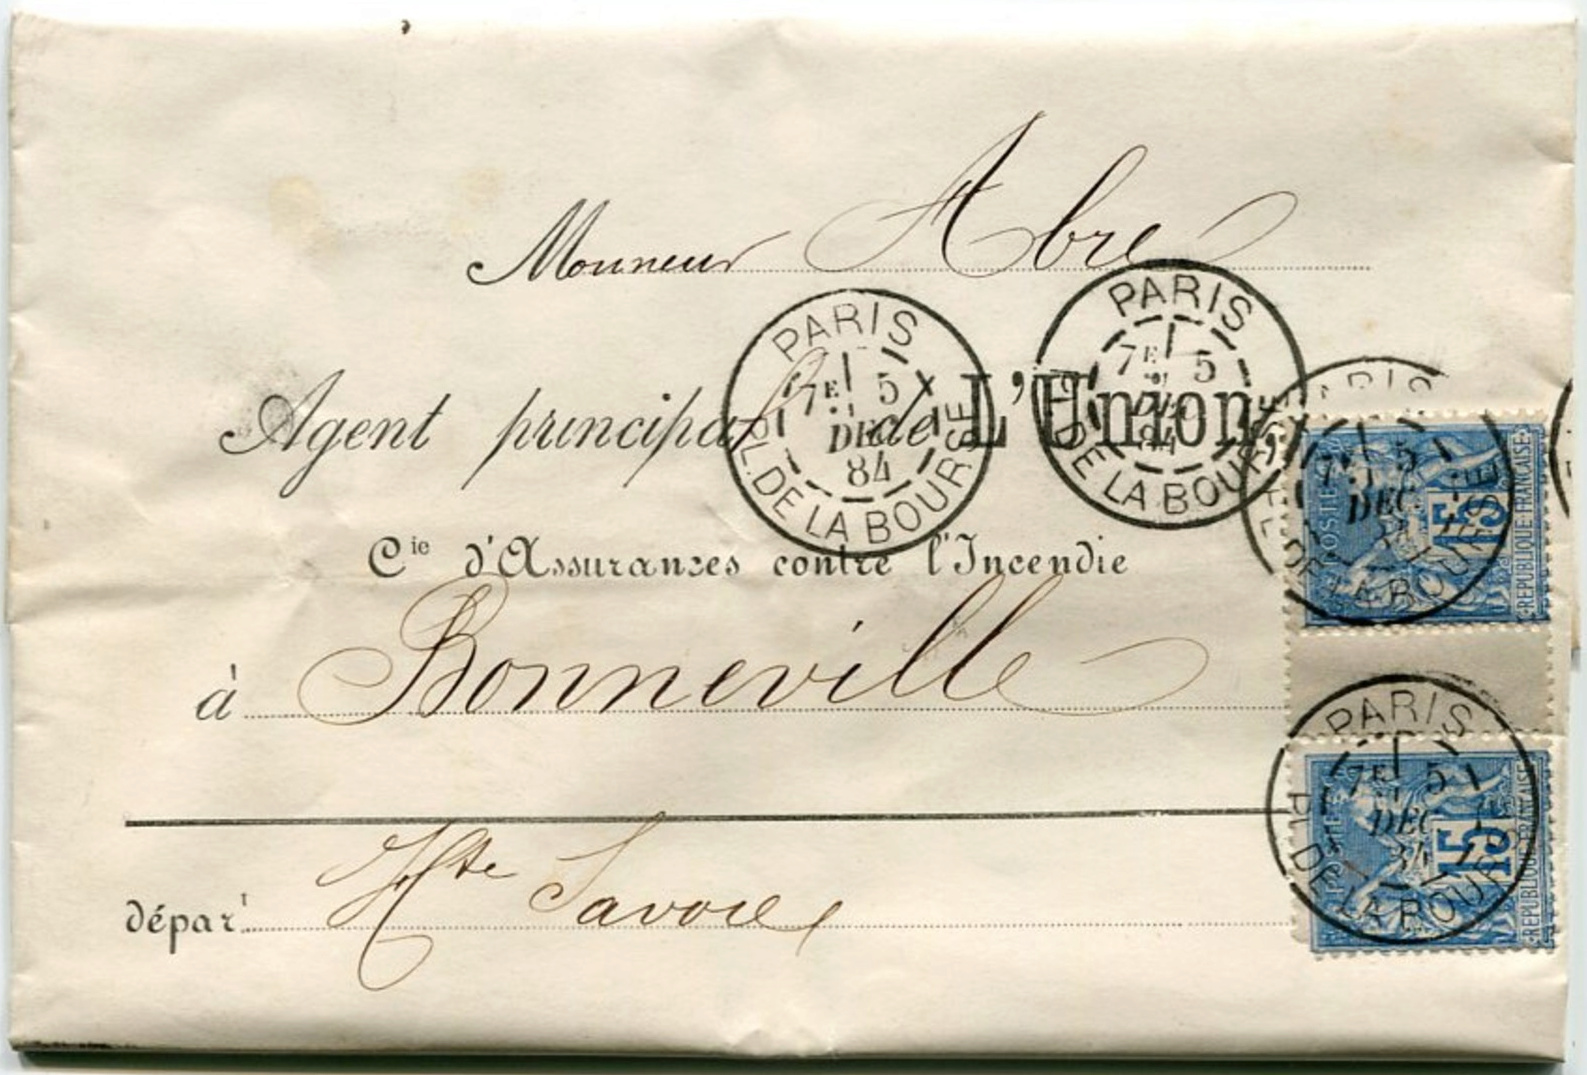 Monsieur Abre
Agent principal de L'Union,
Cie d'Assurances contre l'Incendie
à Bonneville
départ Hte Savoie
PARIS
7E 5
DEC
84
PL. DE LA BOURSE
PARIS
7E 5
DEC
84
PL. DE LA BOURSE
PARIS
7E 5
DEC
84
PL. DE LA BOURSE
POSTES
15
REPUBLIQUE FRANÇAISE
PARIS
7E 5
DEC
84
PL. DE LA BOURSE
POSTES
15
REPUBLIQUE FRANÇAISE